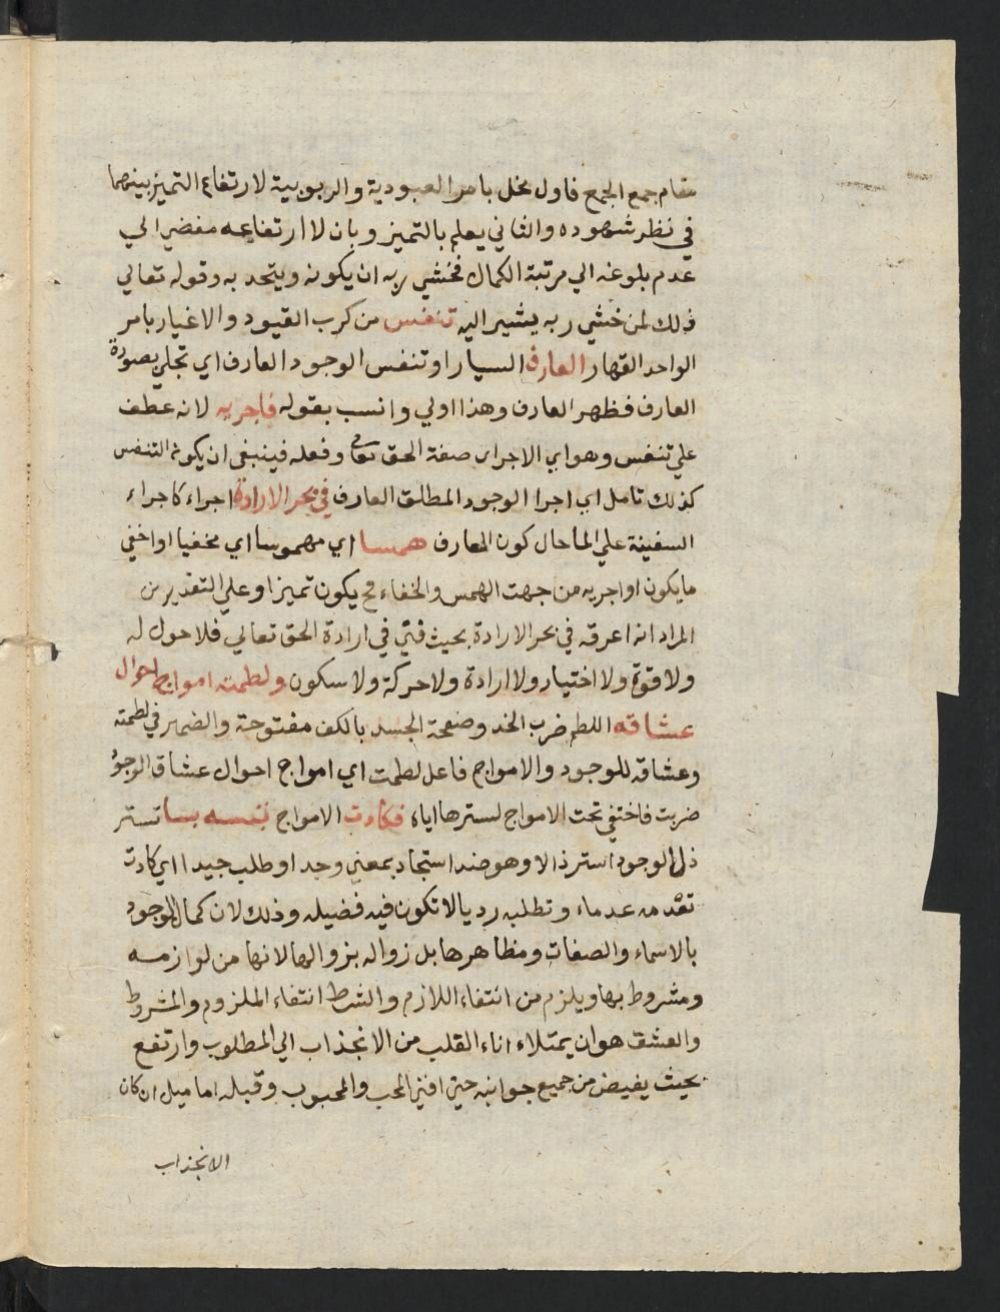 مقام جمع الجمع فاول مخل بامر العبودية والربوبية لارتفاع التميز بينهما
في نظر شهوده والثاني يعلم بالتميز وبان لا ارتفاعه مفضي الي
عدم بلوغه الي مرتبة الكمال فخشي ربه ان يكونه ويتحد به وقوله تعالي
ذلك لمن خشي ربه يشير اليه تنفس من كرب القيود والاغيار بامر
الواحد القهار العارف السيار او تنفس الوجود العارف اي تجلي بصورة
العارف فظهر العارف وهذا اولي وانسب بقوله فاجريه لانه عطف
علي تنفس وهو اي الاجراء صفة الحق تعالي وفعله فينبغي ان يكون التنفس
كذلك تامل اي اجرا الوجود المطلق العارف في بحر الارادة اجراء كاجراء
السفينة علي الما حال كون العارف همسا اي مهموسا اي مخفيا او اخفي
ما يكون او اجريه من جهت الهمس والخفاء فح يكون تميزا وعلي التقديرين
المراد انه اغرقه في بحر الارادة بحيث فني في ارادة الحق تعالي فلا حول له
ولا قوة ولا اختيار ولا ارادة ولا حركة ولا سكون ولطمته امواج احوال
عشاقه اللطم ضرب الخد وصفحة الجسد بالكف مفتوحة والضمير في لطمته
وعشاقه للوجود والامواج فاعل لطمت اي امواج احوال عشاق الوجود
ضربت فاختفي تحت الامواج لسترها اياه فكادت الامواج تستر
ذل الوجود استرذالا وهو ضد استجاد بمعني وجد او طلب جيدا اي كادت
تعدمه عدماء وتطلبه رديا لا تكون فيه فضيله وذلك لان كمال الوجود
بالاسماء والصفات ومظاهرها بل زواله بزوالها لانها من لوازمه
ومشروط بها ويلزم من انتفاء اللازم والشرط انتفاء الملزوم والمشروط
والعشق هو ان يمتلاء اناء القلب من الانجذاب الي المطلوب وارتفع
بحيث يفيض من جميع جوانبه حتي افني المحب والمحبوب وقبله اما ميل ان كان
الانجذاب